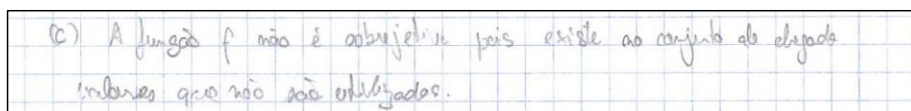 (c) A função f não é sobrejetiva pois existe no conjunto de chegada
valores que não são utilizados.